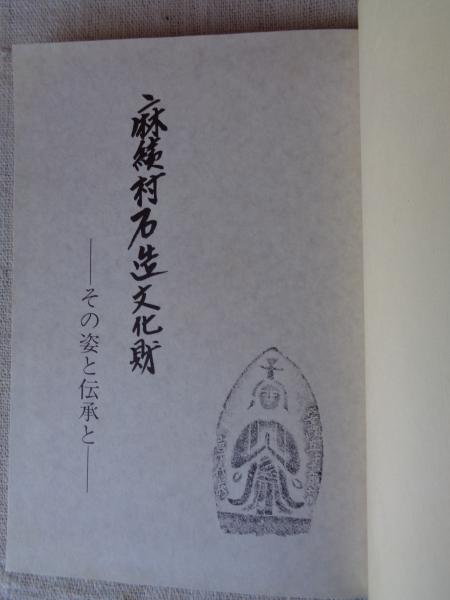 麻績村石造文化財
――その姿と伝承と――